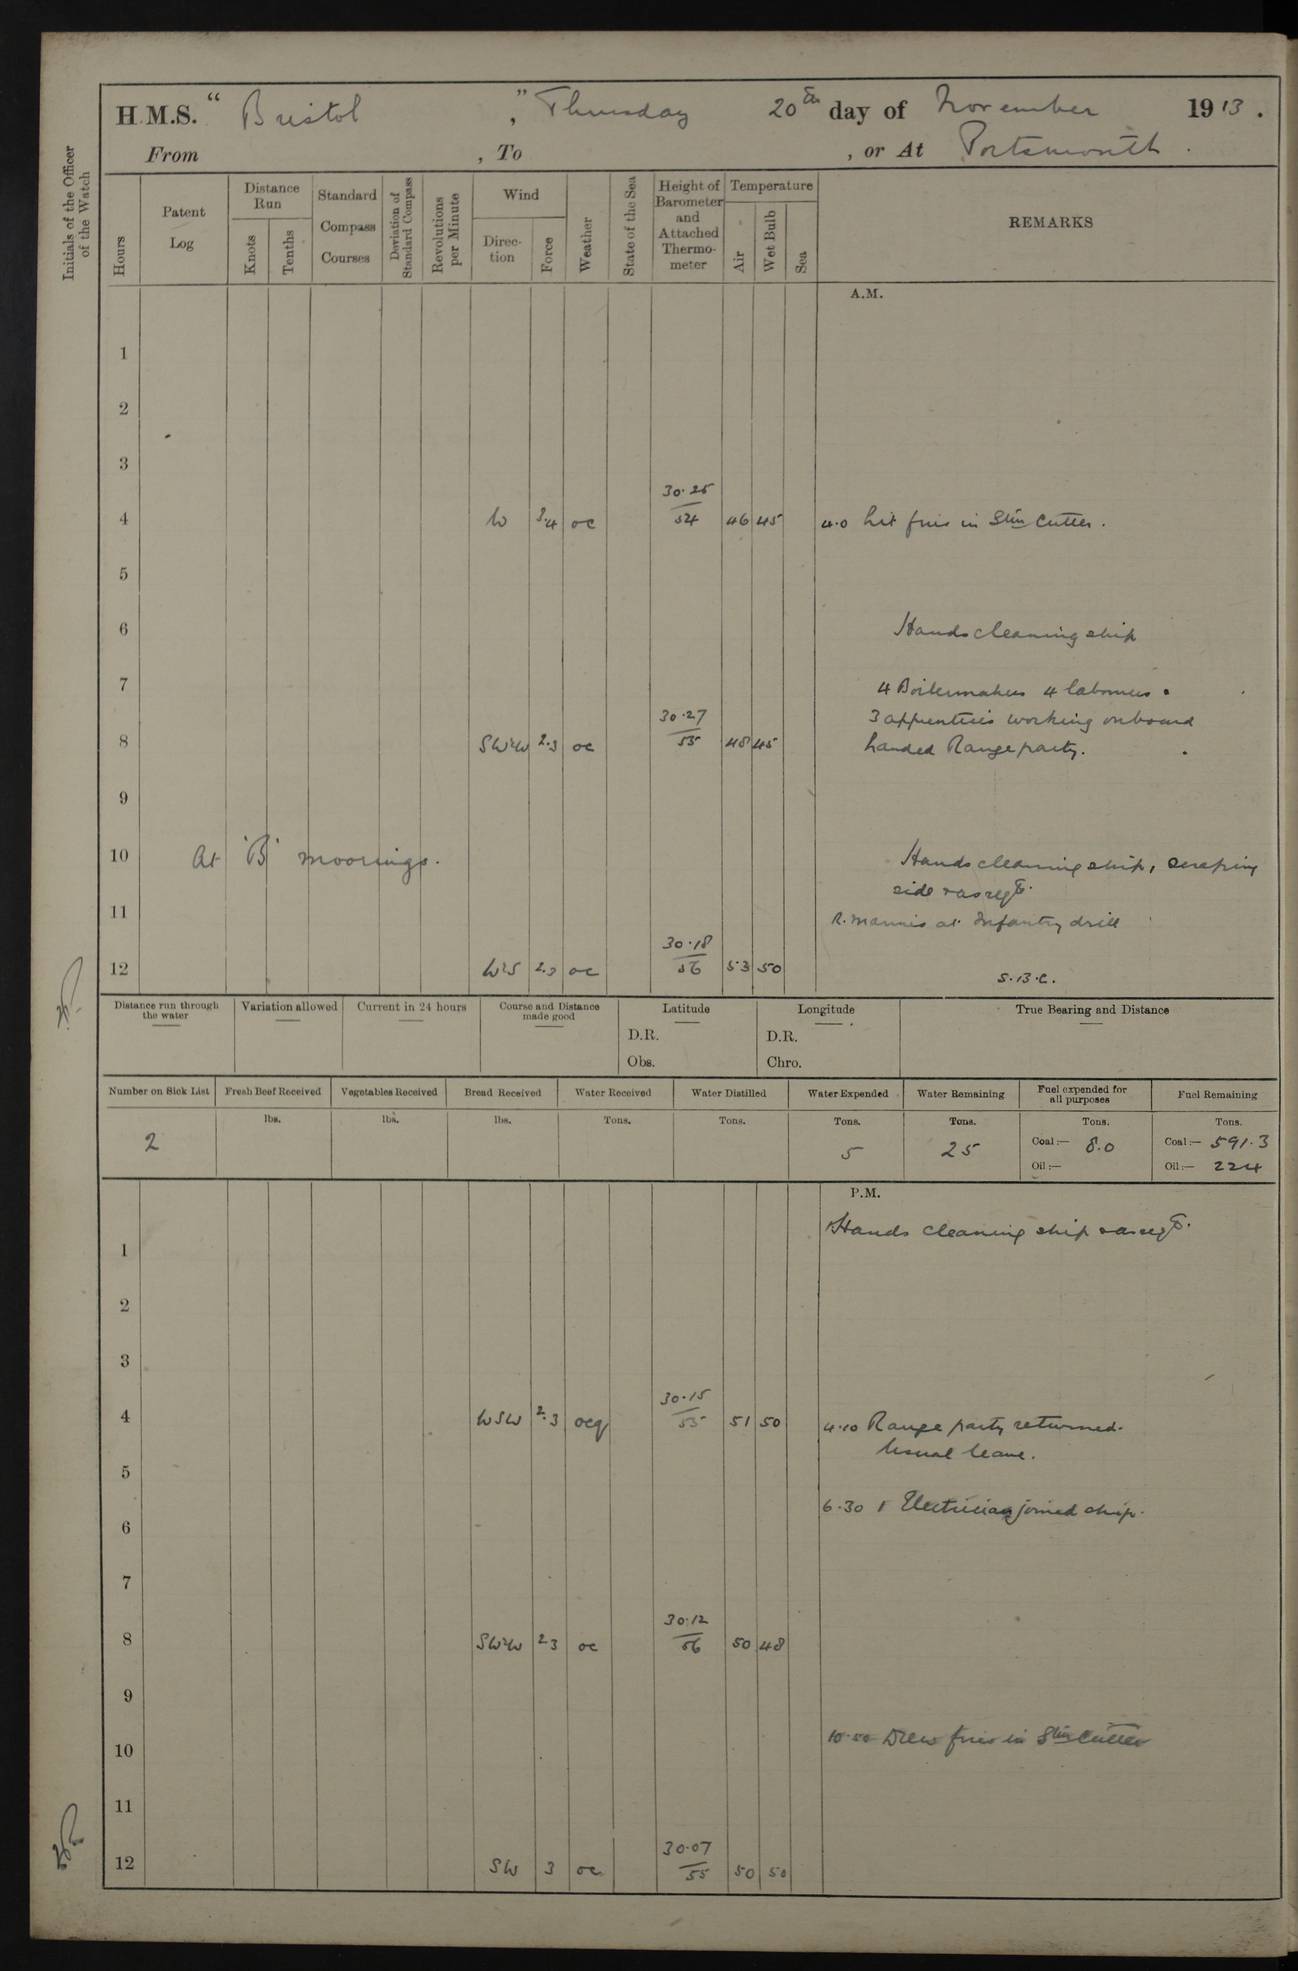 H.M.S. “ Bristol ”, Thursday 20th day of November 1913.
From , To , or At Portsmouth.
Initials of the Officer of the Watch
Hours
Patent Log
Distance Run
Knots
Tenths
Standard Compass Courses
Deviation of Standard Compass
Revolutions per Minute
Wind
Direction
Force
Weather
State of the Sea
Height of Barometer and Attached Thermometer
Temperature
Air
Wet Bulb
Sea
REMARKS
A.M.
1
2
3
4 W 3.4 oc 30.25 / 54 46 45 4.0 Lit fires in Stm Cutter.
5
6 Hands cleaning ship
7 4 Boilermakers 4 labourers
3 apprentices working onboard
8 SW'W 2.3 oc 30.27 / 55 48 45 Landed Range party.
9
10 At 'B' moorings. Hands cleaning ship, scraping
side & as reqd.
11 R. Marines at Infantry drill
12 W'S 2.3 oc 30.18 / 56 53 50 S.B.C.
Distance run through the water
Variation allowed
Current in 24 hours
Course and Distance made good
Latitude
D.R.
Obs.
Longitude
D.R.
Chro.
True Bearing and Distance
Number on Sick List Fresh Beef Received Vegetables Received Bread Received Water Received Water Distilled Water Expended Water Remaining Fuel expended for all purposes Fuel Remaining
lbs. lbs. lbs. Tons. Tons. Tons. Tons. Tons. Tons.
2 5 25 Coal:— 8.0 Coal:— 591.3
Oil:— Oil:— 224
P.M.
Hands cleaning ship & as reqd.
1
2
3
4 WSW 2.3 ocq 30.15 / 55 51 50 4.10 Range party returned.
Usual leave.
5
6.30 1 Electrician joined ship.
6
7
8 SW'W 2.3 oc 30.12 / 56 50 48
9
10.50 Drew fires in Stm Cutter
10
11
12 SW 3 oc 30.07 / 55 50 50